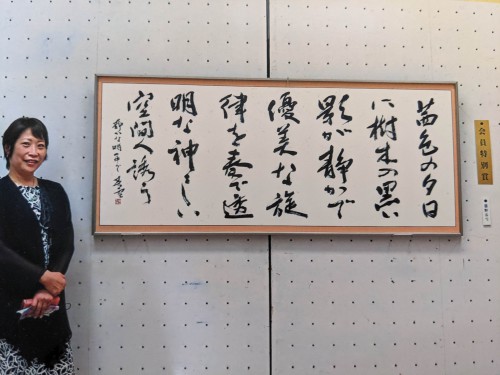 茜色の夕日
に樹木の黒い
影が静かで
優美な旋
律を奏で透
明な神々しい
空間へ誘う
会員特別賞